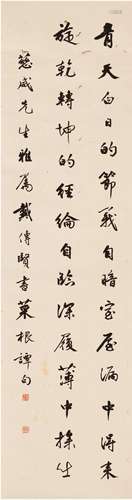 青天白日的節義自暗室屋漏中得來
旋乾轉坤的經綸自臨深履薄中操出
慈威先生雅屬戴傳賢書菜根譚句